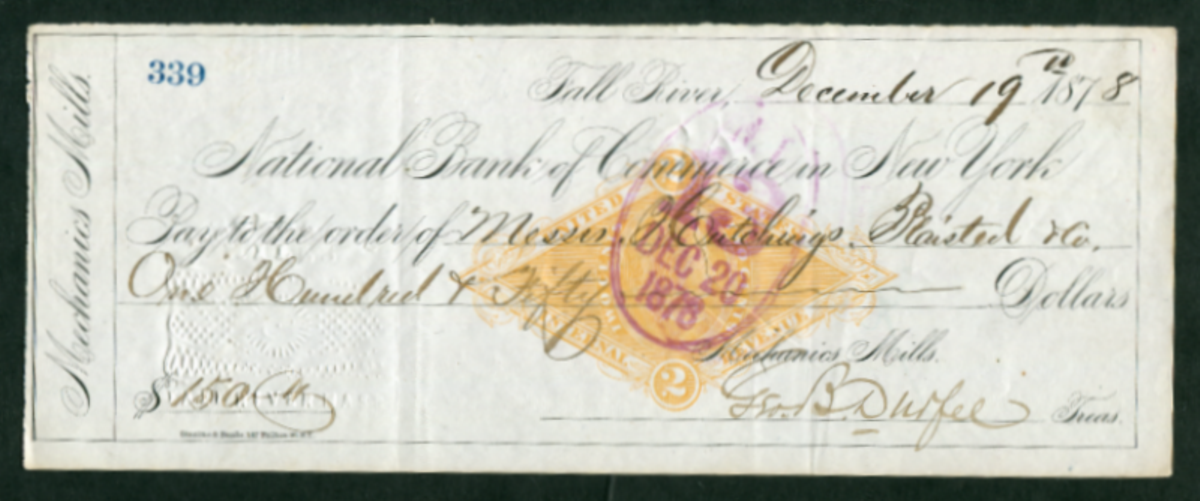 Mechanics Mills.
339
Fall River, December 19th 1878
National Bank of Commerce in New York
Pay to the order of Messrs. Hutchings, Plaisted & Co.
One Hundred & Fifty Dollars
2
UNITED STATES
DEC 20
1878
INTERNAL REVENUE
Mechanics Mills.
2
$150
Geo. B. Durfee Treas.